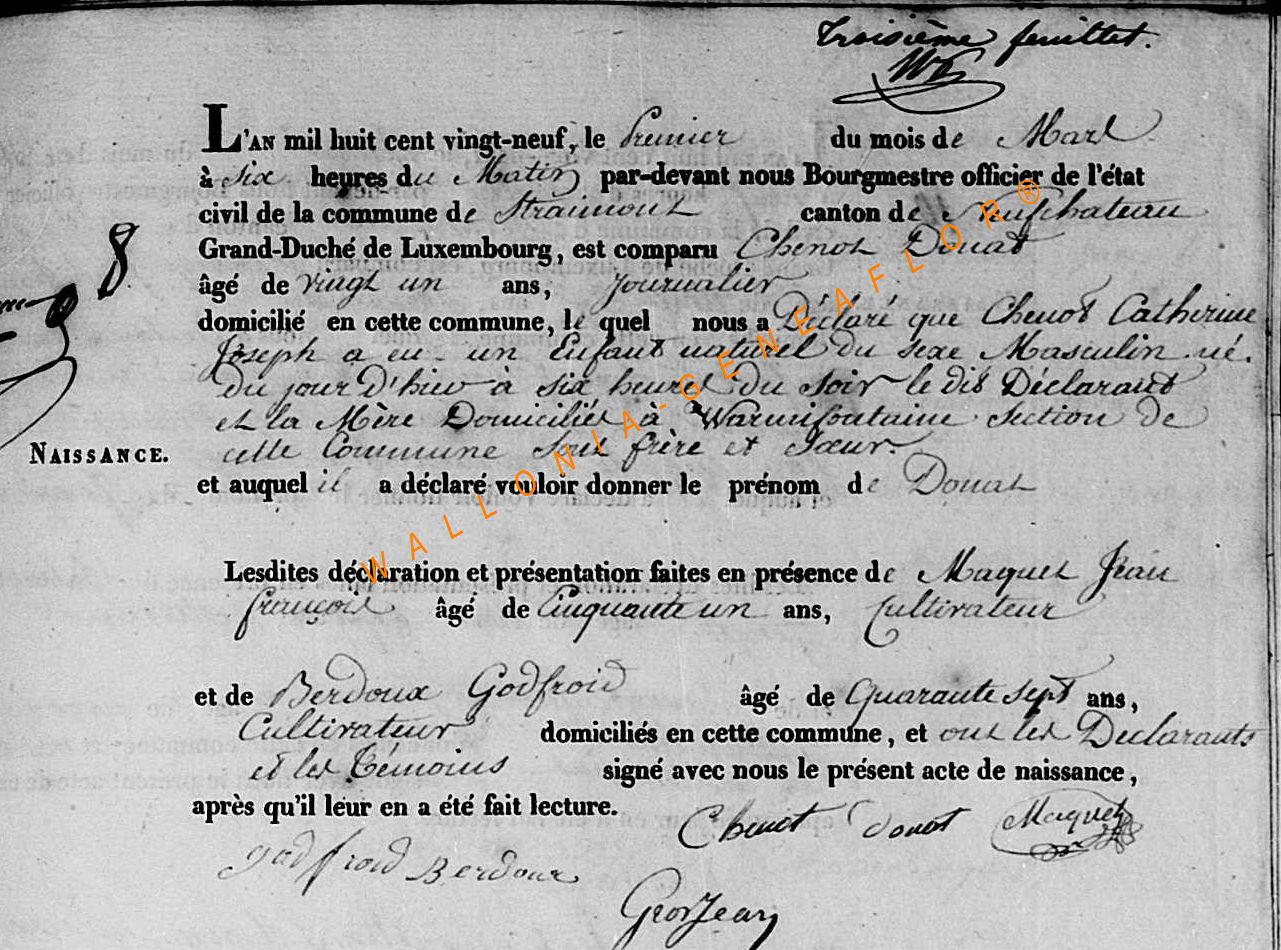 Troisième feuillet.
L'AN mil huit cent vingt-neuf, le Premier du mois de Mars
à six heures du Matin par-devant nous Bourgmestre officier de l'état
civil de la commune de Straimont canton de Neufchateau
Grand-Duché de Luxembourg, est comparu Chenot Donat
8
âgé de vingt un ans, Journalier
domicilié en cette commune, le quel nous a Déclaré que Chenot Catherine
Joseph a eu un Enfant naturel du sexe Masculin né.
du jour d'hier à six heures du soir le dit Déclarant
et la Mère Domiciliés à Warmifontaine section de
NAISSANCE. cette Commune sont frère et Sœur.
et auquel il a déclaré vouloir donner le prénom de Donat
Lesdites déclaration et présentation faites en présence de Maquet Jean
françois âgé de Cinquante un ans, Cultivateur
et de Berdoux Godfroid âgé de Quarante sept ans,
Cultivateur domiciliés en cette commune, et ont les Déclarants
et les témoins signé avec nous le présent acte de naissance,
après qu'il leur en a été fait lecture.
Chenot Donot Maquet
godfroid Berdoux
GeorJean
WALLONIA-GENEAFLOR®